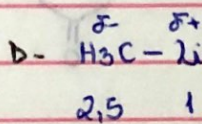 δ- δ+
D- H3C - Li
2,5 1